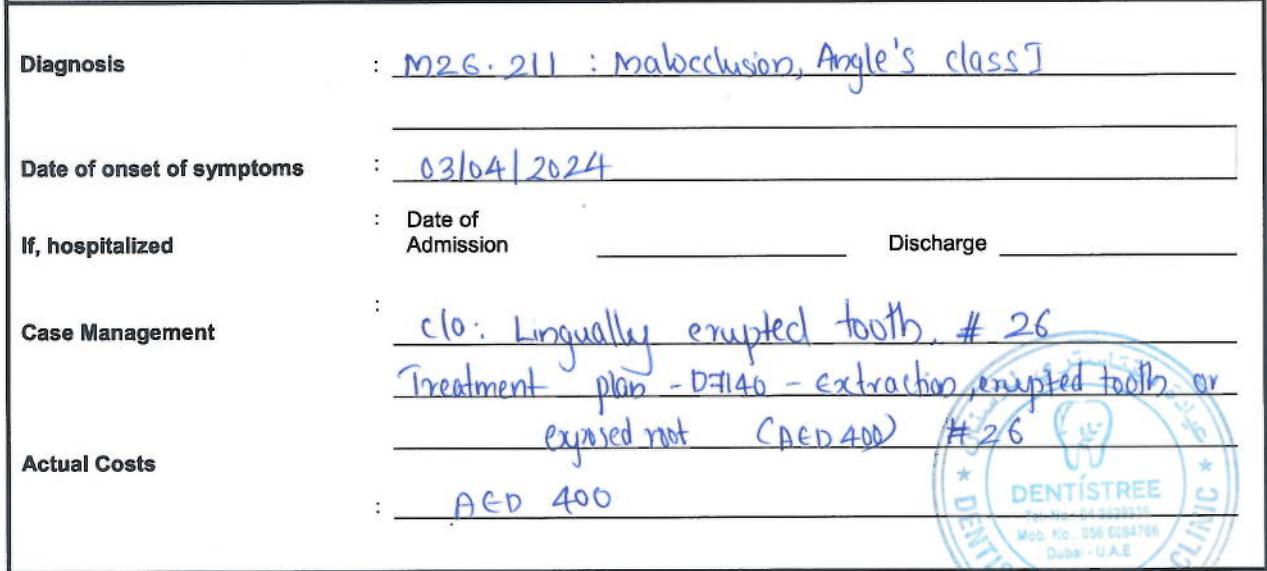 Diagnosis : M26.211 : Malocclusion, Angle's class I
Date of onset of symptoms : 03/04/2024
If, hospitalized : Date of Admission Discharge
Case Management : c/o: Lingually erupted tooth. # 26
Treatment plan - D7140 - extraction, erupted tooth or
exposed root (AED 400) # 26
Actual Costs : AED 400
DENTISTREE
Mob. No.: 056 6084766
Dubai - U.A.E
CLINIC